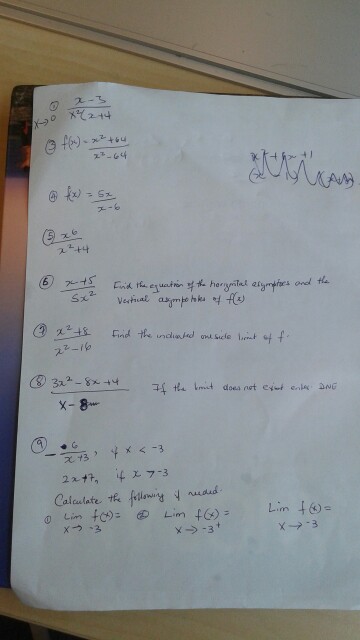 ① x-3
x→0 x²(x+4
③ f(x) = x²+64
x²-64
④ f(x) = 5x
x-6
⑤ x6
x²+4
⑥ x+5 Find the equation of the horizontal asymptotes and the
5x² vertical asymptotes of f(x)
⑦ x²+8 Find the indicated one side limit of f.
x²-16
⑧ 3x²-8x+4 If the limit does not exist enter DNE
x-8
⑨ 6
x+3, if x < -3
2x+7, if x > -3
Calculate the following if needed.
① Lim f(x)= ② Lim f(x)= Lim f(x)=
x→-3 x→-3⁺ x→-3